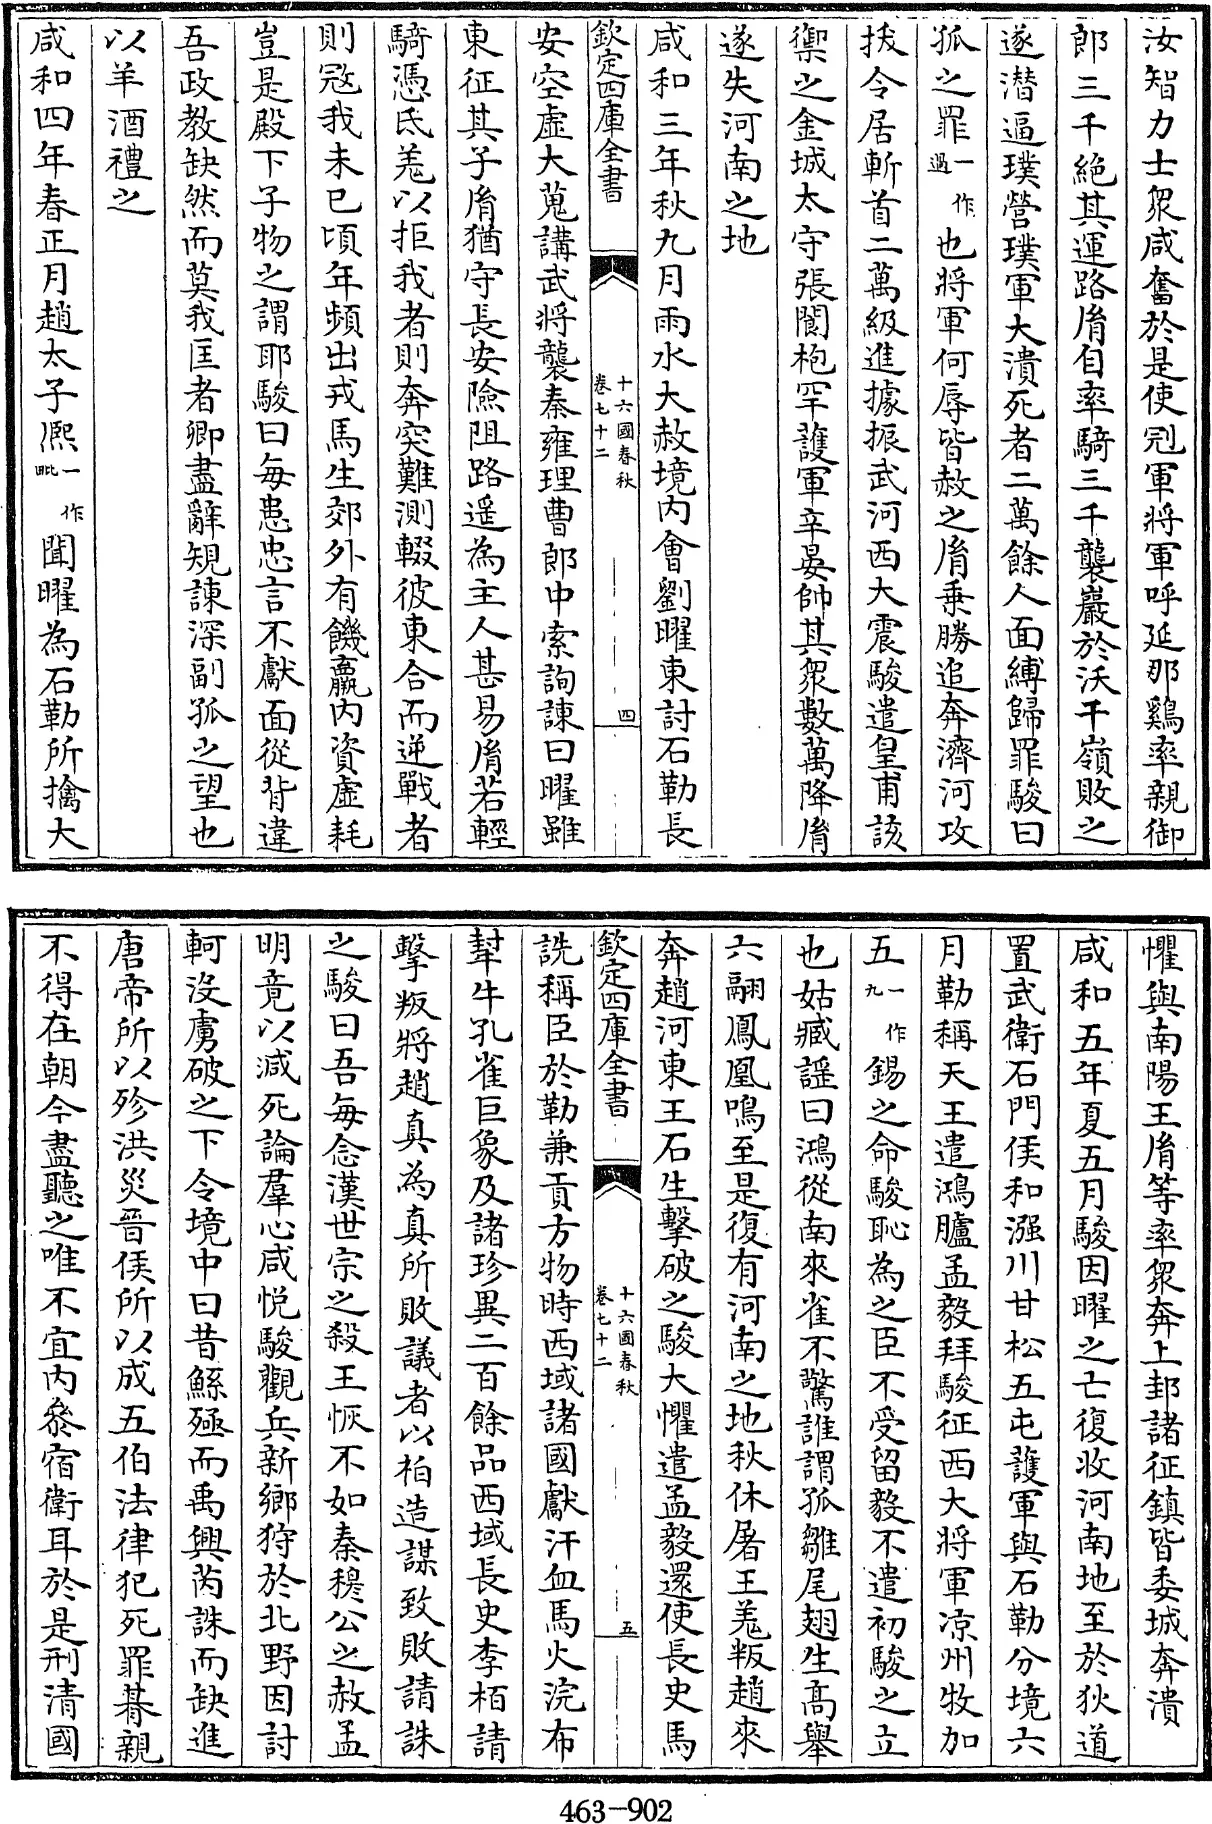 汝智力士衆咸奮於是使冠軍將軍呼延那鷄率親御
郎三千絶其運路胤自率騎三千襲巖於沃干嶺敗之
遂潜逼璞營璞軍大潰死者二萬餘人面縛歸罪駿曰
孤之罪一作過也將軍何辱皆赦之胤乗勝追奔濟河攻
拔令居斬首二萬級進據振武河西大震駿遣皇甫該
禦之金城太守張閬枹罕護軍辛晏帥其衆數萬降胤
遂失河南之地
咸和三年秋九月雨水大赦境内會劉曜東討石勒長
欽定四庫全書
十六國春秋
卷七十二
四
安空虛大蒐講武將襲秦雍理曹郎中索詢諫曰曜雖
東征其子胤猶守長安險阻路遥為主人甚易胤若輕
騎憑氐羗以拒我者則奔突難測輟彼東合而逆戰者
則冦我未已頃年頻出戎馬生郊外有饑羸内資虛耗
豈是殿下子物之謂耶駿曰每患忠言不獻面從背違
吾政教缺然而莫我匡者卿盡辭規諫深副孤之望也
以羊酒禮之
咸和四年春正月趙太子熈一作毗聞曜為石勒所擒大
懼與南陽王胤等率衆奔上邽諸征鎮皆委城奔潰
咸和五年夏五月駿因曜之亡復收河南地至於狄道
置武衛石門侯和漒川甘松五屯護軍與石勒分境六
月勒稱天王遣鴻臚孟毅拜駿征西大將軍凉州牧加
五一作九錫之命駿恥為之臣不受留毅不遣初駿之立
也姑臧謡曰鴻從南來雀不驚誰謂孤雛尾翅生高舉
六翮鳳凰鳴至是復有河南之地秋休屠王羌叛趙來
奔趙河東王石生擊破之駿大懼遣孟毅還使長史馬
欽定四庫全書
十六國春秋
卷七十二
五
詵稱臣於勒兼貢方物時西域諸國獻汗血馬火浣布
犎牛孔雀巨象及諸珍異二百餘品西域長史李栢請
擊叛將趙真為真所敗議者以柏造謀致敗請誅
之駿曰吾每念漢世宗之殺王恢不如秦穆公之赦孟
明竟以減死論羣心咸悦駿觀兵新鄉狩於北野因討
軻没虜破之下令境中曰昔鯀殛而禹興芮誅而缺進
唐帝所以殄洪災晉侯所以成五伯法律犯死罪朞親
不得在朝今盡聽之唯不宜内叅宿衛耳於是刑清國
463-902